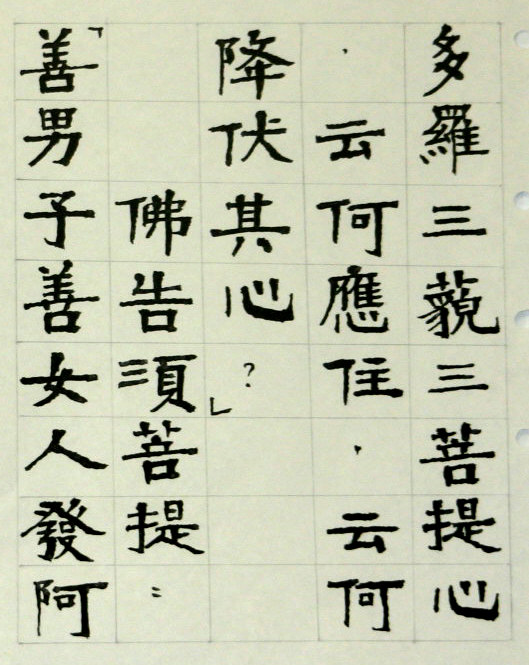 多羅三藐三菩提心
，云何應住，云何
降伏其心？」
佛告須菩提：
「善男子善女人發阿